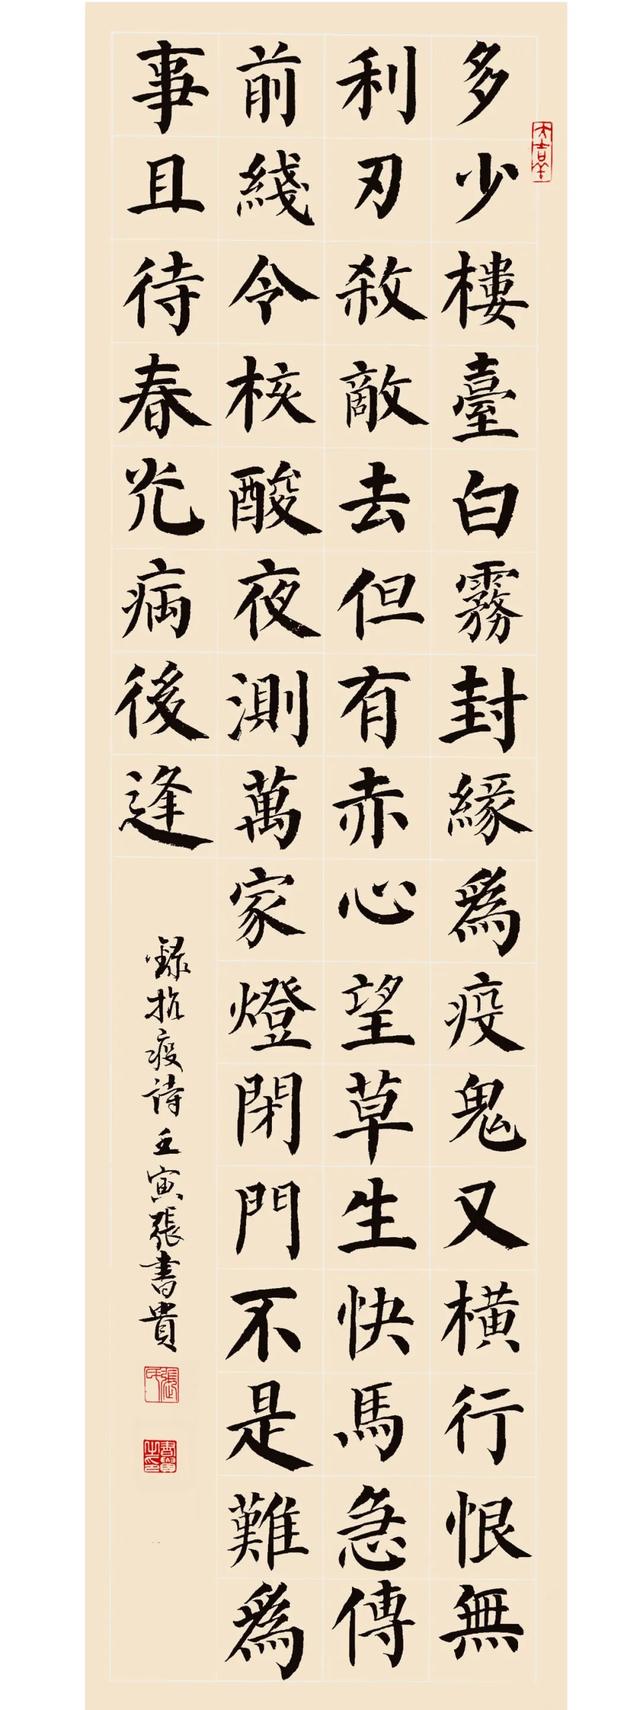 多少樓臺白霧封緣爲疫鬼又橫行恨無
利刃殺敵去但有赤心望草生快馬急傳
前綫令核酸夜測萬家燈閉門不是難爲
事且待春光病後逢
錄抗疫诗壬寅張書貴
大吉羊